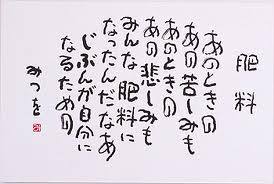 肥料
あのときの
あの苦しみも
あのときの
あの悲しみも
みんな肥料に
なったんだなあ
じぶんが自分に
なるための
みつを